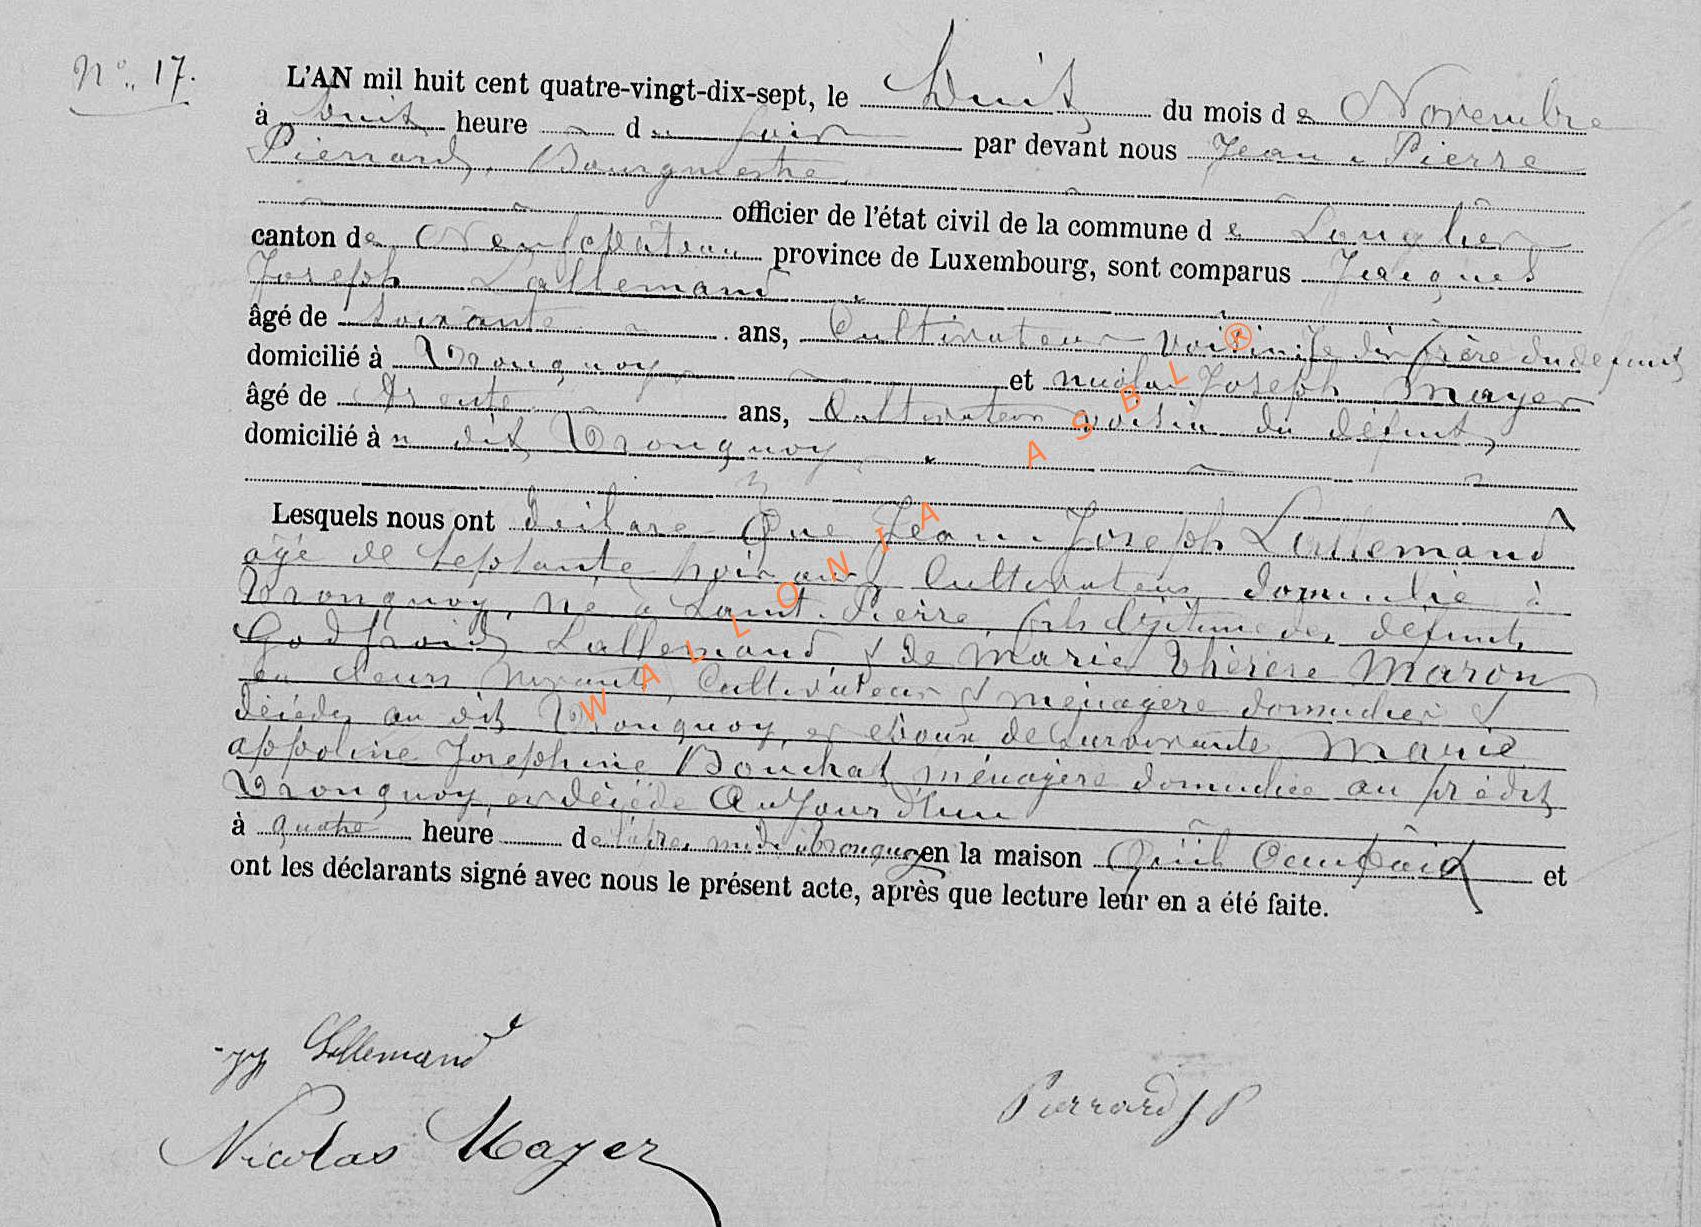 N° 17.
L'AN mil huit cent quatre-vingt-dix-sept, le huit du mois de Novembre
à huit heure du soir par devant nous Jean Pierre
Pierrard, Bourgmestre
officier de l'état civil de la commune de Longlier
canton de Neufchâteau province de Luxembourg, sont comparus Jacques
Joseph Lallemand
âgé de soixante ans, Cultivateur voisin frère du defunt
domicilié à Tronquoy et nicolas Joseph Mayer
âgé de trente ans, Cultivateur voisin du défunt,
domicilié au dit Tronquoy
Lesquels nous ont déclaré Que Jean Joseph Lallemand
agé de septante trois ans Cultivateur domicilié à
Tronquoy, né à Saint. Pierre, fils légitime des défunts
Godfroid Lallemand & de Marie Thérèse Maron
en leurs vivants, Cultivateur & ménagère domiciliés &
décédés au dit Tronquoy, et époux de survivante Marie
appoline Josephine Bouchat ménagère domiciliée au prédit
Tronquoy, est décédé Aujourd'hui
à quatre heure de l'après midi à Tronquoy en la maison qu'il occupait et
ont les déclarants signé avec nous le présent acte, après que lecture leur en a été faite.
JJ Lallemand
Nicolas Mayer
Pierrard J P
WALLONIA ASBL ®